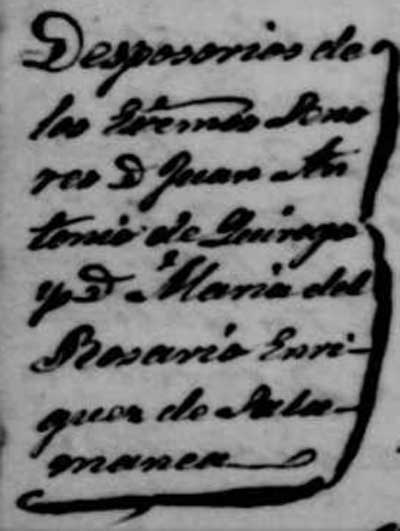 Desposorios de
los Exẽmos Seño
res D. Juan An
tonio de Quiroga
y D.ª Maria del
Rosario Enri-
quez de Sala-
manca